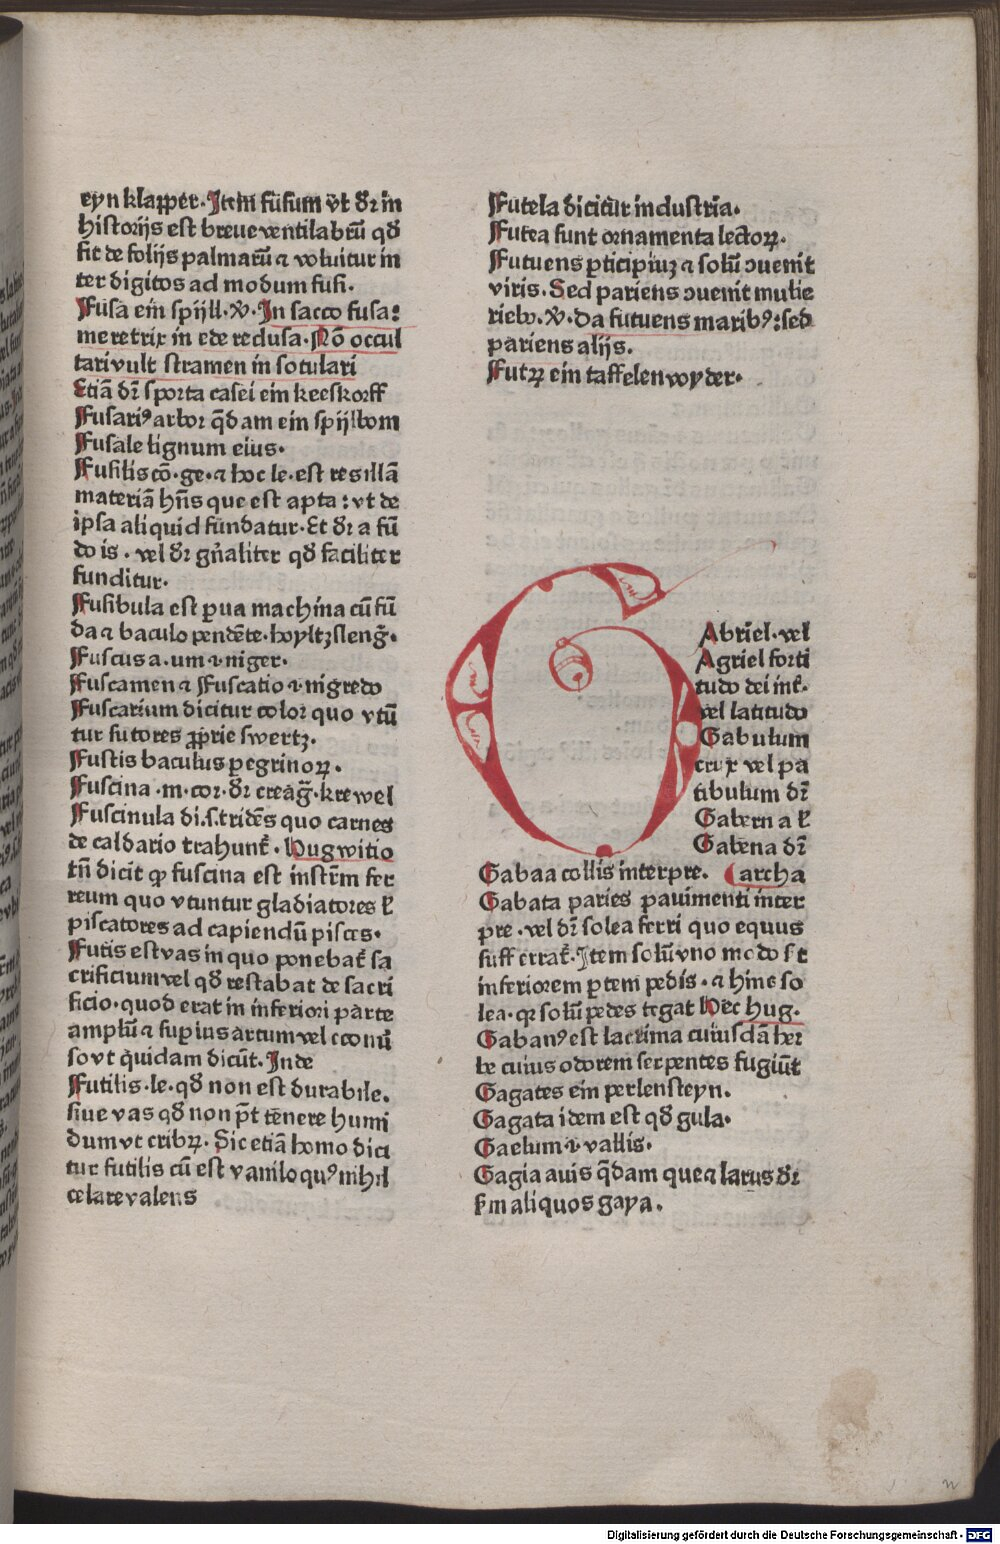 eyn klapper. Itēm fusum vt d͛r in
historijs est breue ventilabrū qd͛
fit de folijs palmarū ⁊ voluitur in
ter digitos ad modum fusi.
Fusa ein spijll. v̊. In sacco fusa:
meretrix in ede reclusa. Nō occul
tari vult stramen in sotulari
Etiā dr̄ sporta casei ein keeskorff
Fusariꝰ arbor q̄dam ein spijlbom
Fusale lignum eius.
Fusilis cō. ge. ⁊ hoc le. est res illā
materiā hn̄s que est apta: vt de
ipsa aliquid fundatur. Et d͛r a fū
do is. vel d͛r gn̄aliter qd͛ faciliter
funditur.
Fusibula est ꝑua machina cū fū
da ⁊ baculo pendēte. hoyltzslēg͛.
Fuscus a. um .i. niger.
Fuscamen ⁊ Fuscatio .i. nigredo
Fuscarium dicitur color quo vtū
tur sutores ꝓprie swertz.
Fustis baculus ꝑegrinoꝝ.
Fuscina .m. cor. d͛r creag͛. krewel
Fuscinula di. s. tridēs quo carnes
de caldario trahunt᷑. Hugwitio
tn̄ dicit ꝙ fuscina est instr̄m fer
reum quo vtuntur gladiatores l̛
piscatores ad capiendū pisces.
Futis est vas in quo ponebat᷑ sa
crificium vel qd͛ restabat de sacri
ficio. quod erat in inferiori parte
amplū ⁊ supius artum vel econū
so vt quidam dicūt. Inde
Futilis .le. qd͛ non est durabile.
siue vas qd͛ non pt̄ tenere humi
dum vt cribꝝ. Sic etiā homo dici
tur futilis cū est vaniloquꝰ nihil
celare valens
Futela dicitur industria.
Futea sunt ornamenta lectoꝝ.
Futuens ꝑticipiuꝫ ⁊ solū ↄuenit
viris. Sed pariens ↄuenit mulie
rieb᷒. v̊. Da futuens maribꝰ: sed
pariens alijs.
Futꝝ ein taffelenwoyder.
GAbriel. vel
Agriel forti
tudo dei int᷑.
vel latitudo
Gabulum
crux vel pa
tibulum dr̄
Gaberna l̛
Gabena dr̄
Gabaa collis interpre. archa
Gabata paries pauimenti inter
pre. vel dr̄ solea ferri quo equus
suff errat᷑. Item solū vno modo s̄t
inferiorem ꝑtem pedis. ⁊ hinc so
lea. qꝛ solū pedes tegat Hec hug.
Gabanꝰ est lacrima cuiusdā her
be cuius odorem serpentes fugiūt
Gagates ein perlensteyn.
Gagata idem est qd͛ gula.
Gaelum .i. vallis.
Gagia auis q̄dam que ⁊ larus d͛r
scd̄m aliquos gaya.
Digitalisierung gefördert durch die Deutsche Forschungsgemeinschaft - DFG